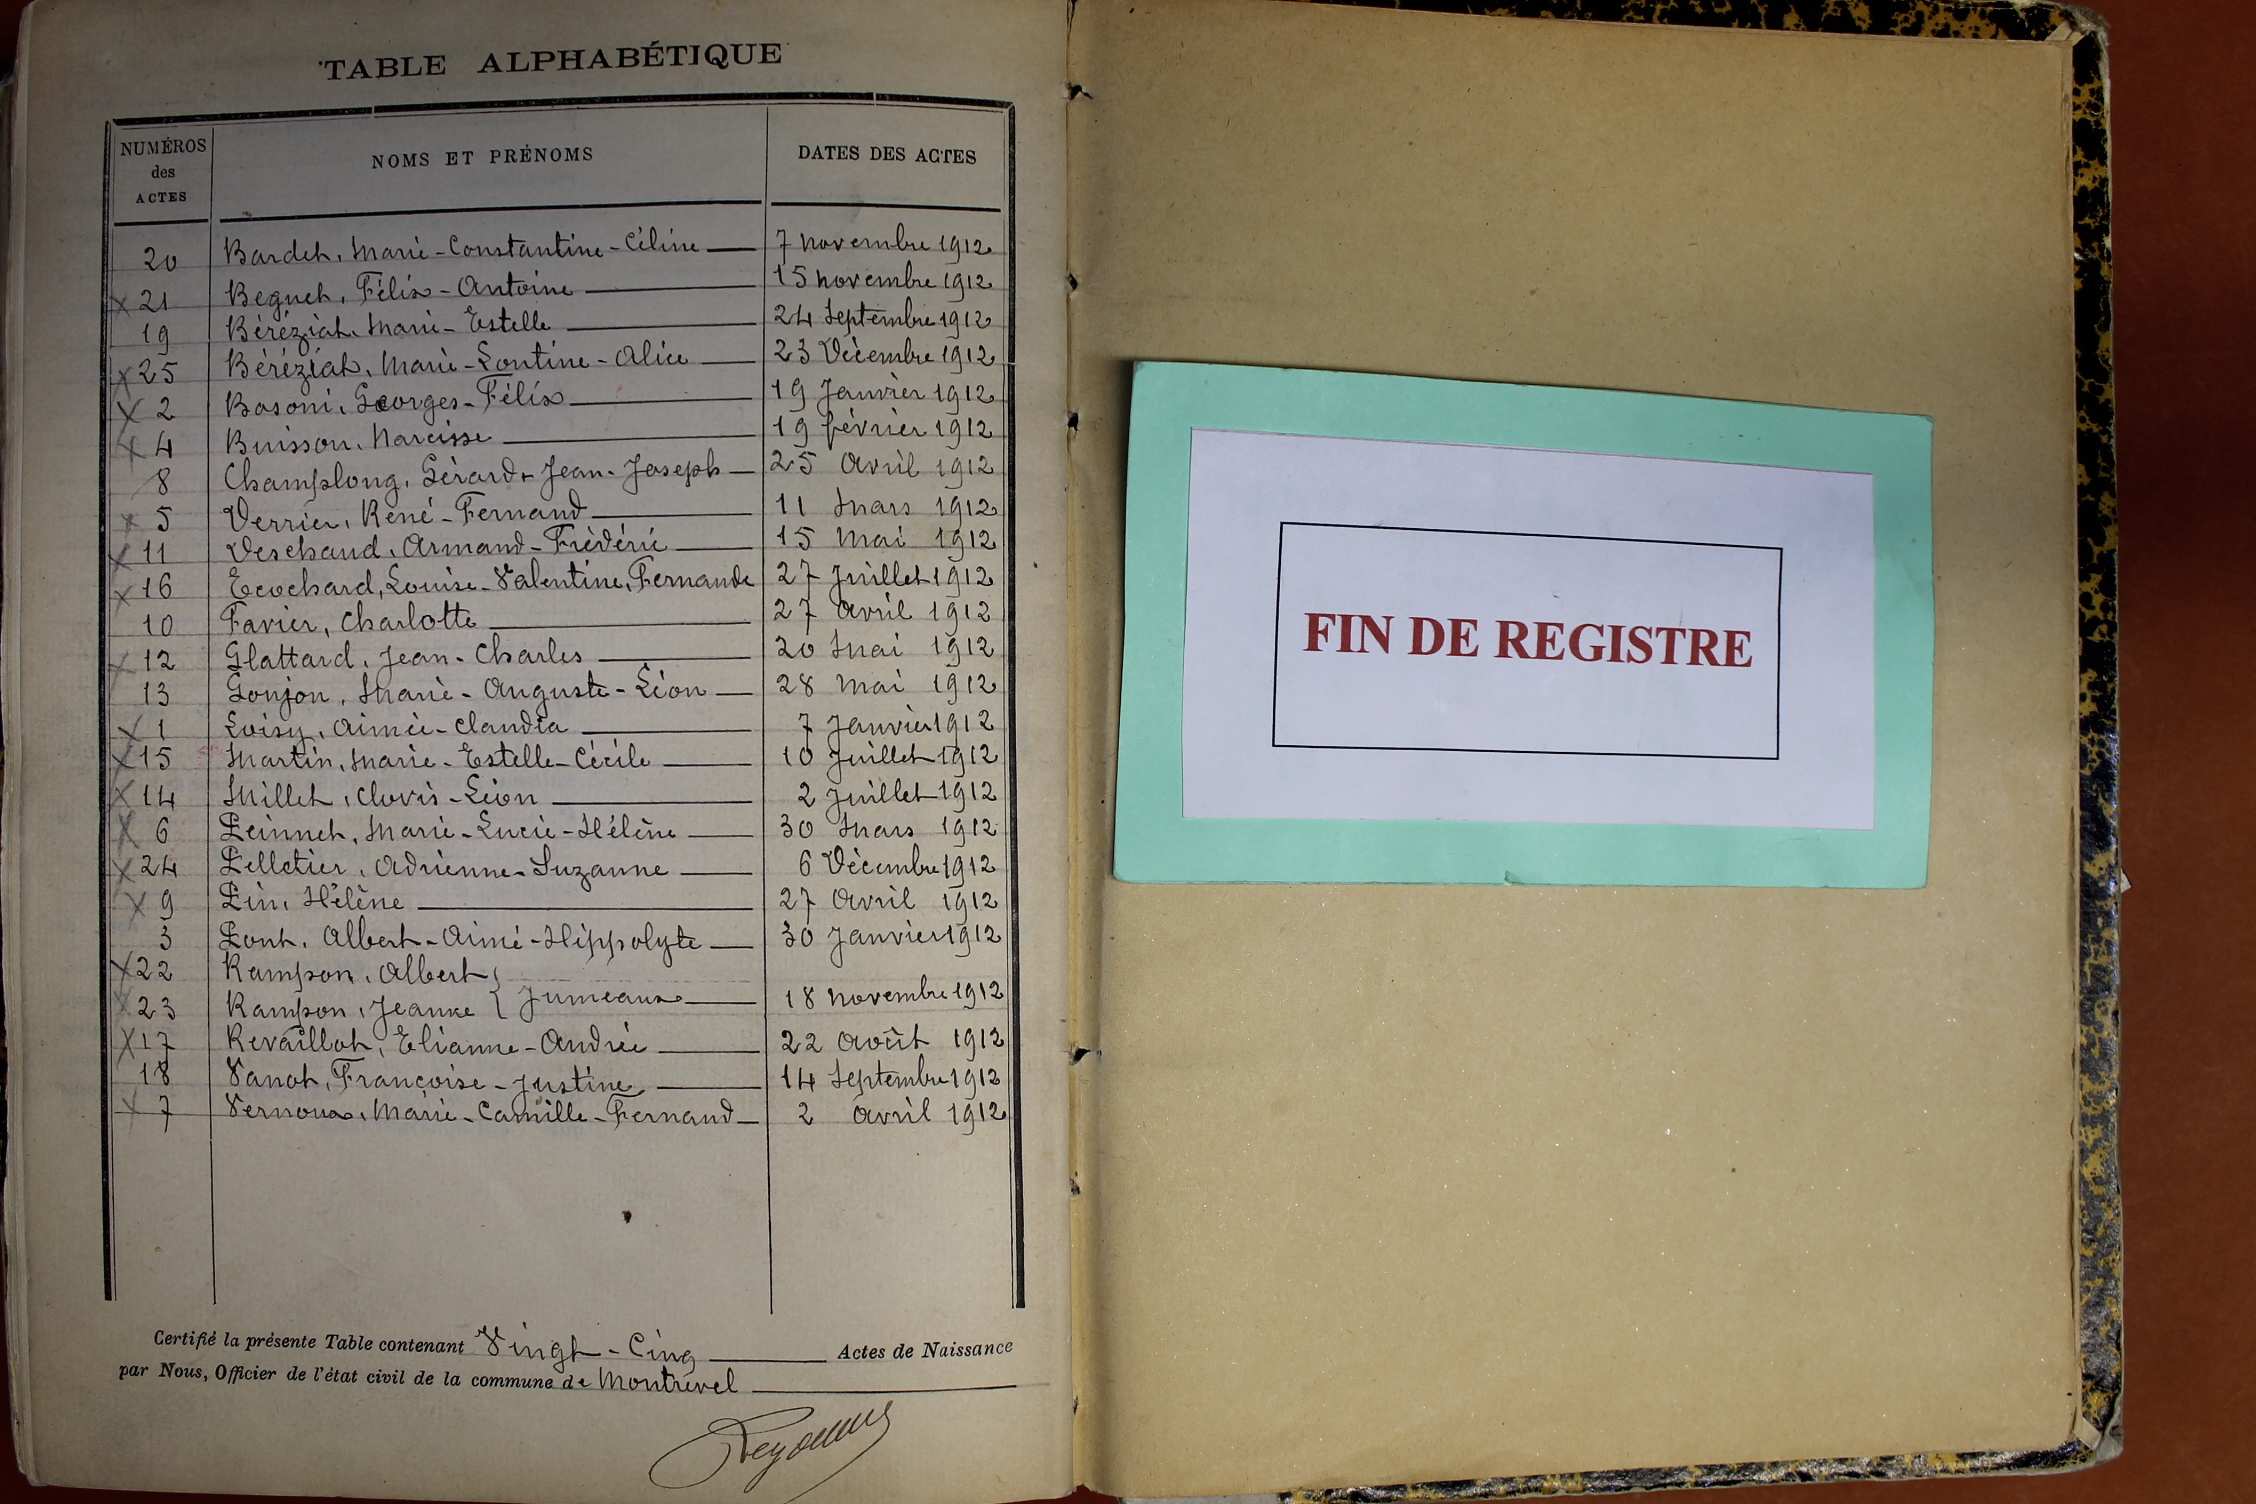 TABLE ALPHABÉTIQUE
NUMÉROS des ACTES NOMS ET PRÉNOMS DATES DES ACTES
20 Bardet, Marie-Constantine-Céline 7 novembre 1912
x 21 Beguet, Félix-Antoine 15 novembre 1912
19 Béréziat, Marie-Estelle 24 Septembre 1912
x 25 Béréziat, Marie-Lontine-Alice 23 Décembre 1912
x 2 Bosoni, Georges-Félix 19 Janvier 1912
x 4 Buisson, Narcisse 19 février 1912
8 Champlong, Gérard, Jean-Joseph 25 Avril 1912
x 5 Derrier, René-Fernand 11 Mars 1912
x 11 Deschaud, Armand-Frédéric 15 Mai 1912
x 16 Ecochard, Louise-Valentine, Fernande 27 Juillet 1912
10 Favier, Charlotte 27 Avril 1912
x 12 Glattard, Jean-Charles 20 Mai 1912
13 Gonjon, Marie-Auguste-Léon 28 Mai 1912
x 1 Loisy, Aimée-Claudia 7 Janvier 1912
x 15 Martin, Marie-Estelle-Cécile 10 Juillet 1912
x 14 Millet, Clovis-Léon 2 Juillet 1912
x 6 Peinnet, Marie-Lucie-Hélène 30 Mars 1912
x 24 Pelletier, Adrienne-Suzanne 6 Décembre 1912
x 9 Pin, Hélène 27 Avril 1912
3 Pont, Albert-Aimé-Hippolyte 30 Janvier 1912
x 22 Rampon, Albert
x 23 Rampon, Jeanne } Jumeaux 18 novembre 1912
x 17 Revaillot, Elianne-Andrée 22 Août 1912
18 Vanot, Françoise-Justine 14 Septembre 1912
x 7 Vernoux, Marie-Camille-Fernand 2 Avril 1912
Certifié la présente Table contenant Vingt-Cinq Actes de Naissance
par Nous, Officier de l'état civil de la commune de Montrevel
FIN DE REGISTRE